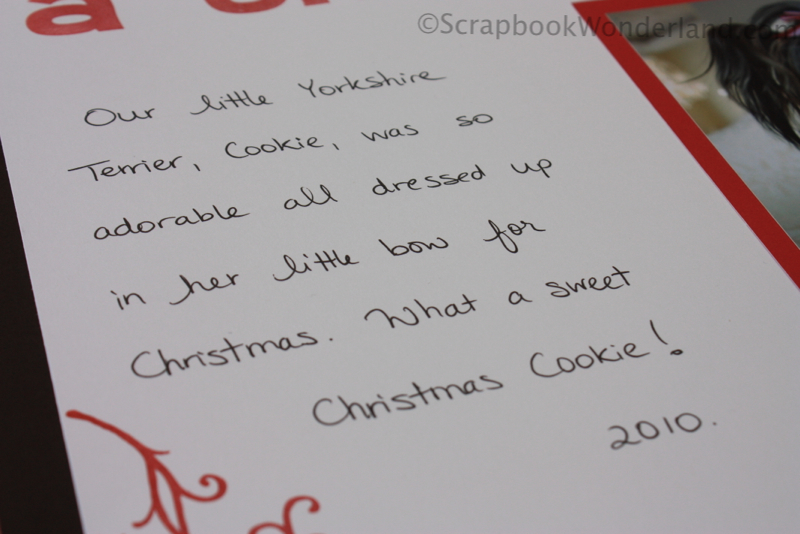 ©ScrapbookWonderland.com
Our little Yorkshire
Terrier, Cookie, was so
adorable all dressed up
in her little bow for
Christmas. What a sweet
Christmas Cookie!
2010.